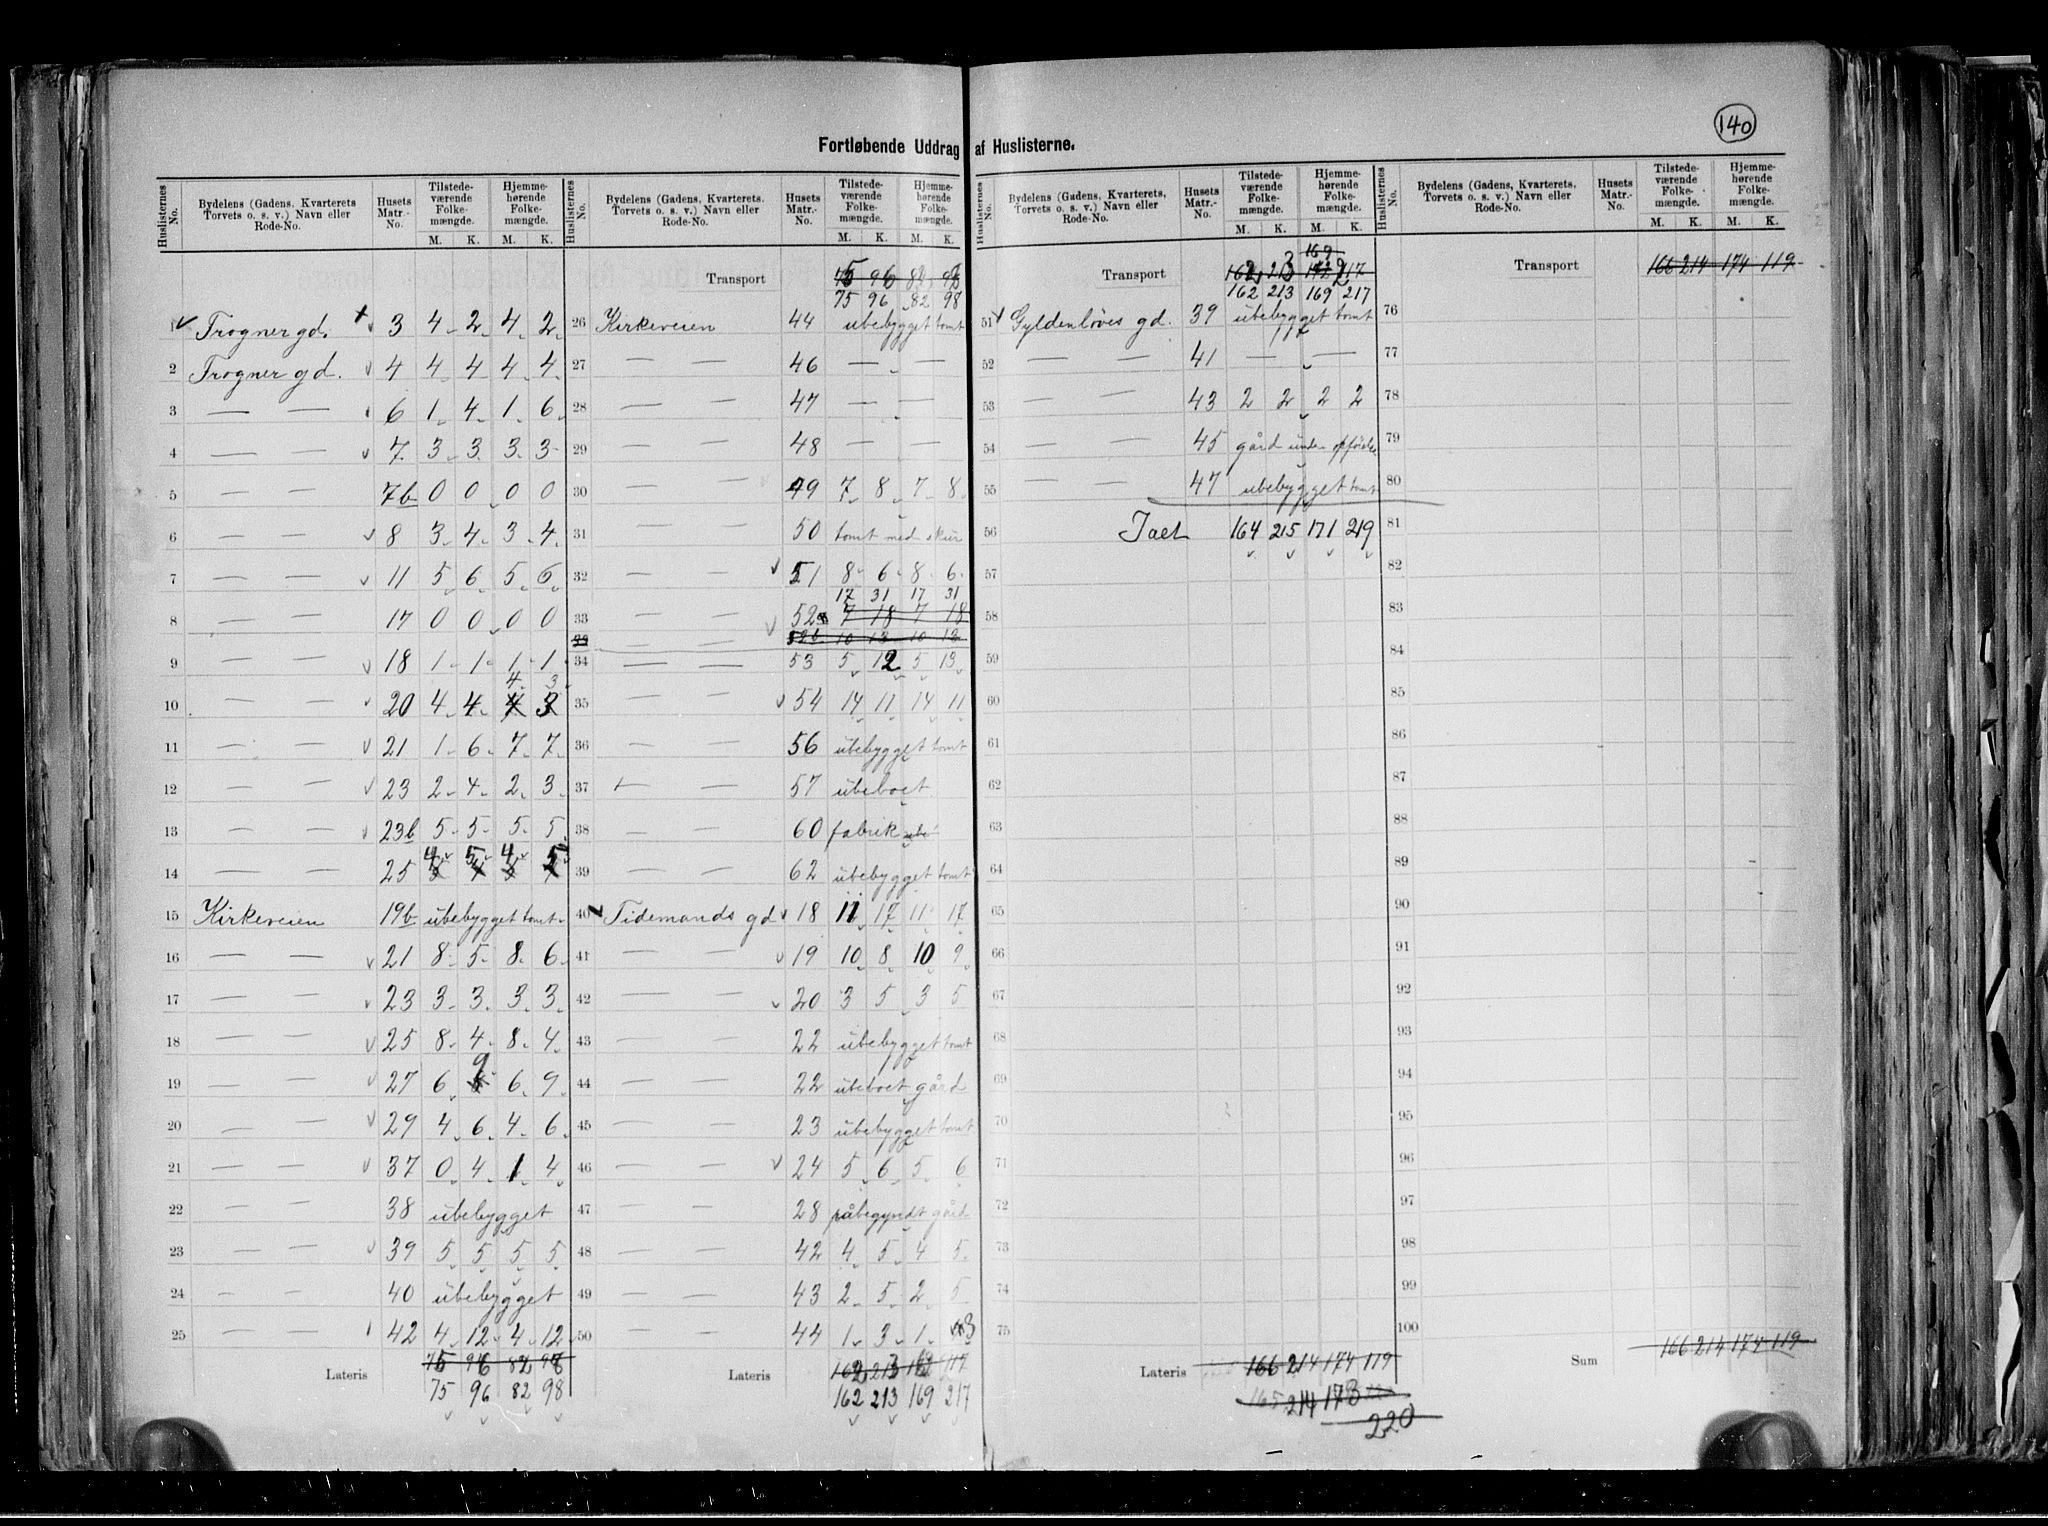 140
Fortløbende Uddrag af Huslisterne.
Huslisternes No. Bydelens (Gadens, Kvarterets Torvets o. s. v.) Navn eller Rode-No. Husets Matr.-No. Tilstedeværende Folkemængde. M. K. Hjemmehørende Folkemængde. M. K.
1 Frogner gd. 3 4 2 4 2
2 Frogner gd. 4 4 4 4 4
3 — — 6 1 4 1 6
4 — — 7 3 3 3 3
5 — — 7b 0 0 0 0
6 — — 8 3 4 3 4
7 — — 11 5 6 5 6
8 — — 17 0 0 0 0
9 — — 18 1 1 1 1
4 3
10 — — 20 4 4
11 — — 21 1 6 7 7
12 — — 23 2 4 2 3
13 — — 23b 5 5 5 5
4 5 4 5
14 — — 25
15 Kirkeveien 19b ubebygget tomt
16 — — 21 8 5 8 6
17 — — 23 3 3 3 3
18 — — 25 8 4 8 4
19 — — 27 6 9 6 9
20 — — 29 4 6 4 6
21 — — 37 0 4 1 4
22 — — 38 ubebygget
23 — — 39 5 5 5 5
24 — — 40 ubebygget
25 — — 42 4 12 4 12
Lateris 75 96 82 98
75 96 82 98
Huslisternes No. Bydelens (Gadens, Kvarterets. Torvets o. s. v.) Navn eller Rode-No. Husets Matr.-No. Tilstedeværende Folkemængde. M. K. Hjemmehørende Folkemængde. M. K.
Transport 75 96 82 98
75 96 82 98
26 Kirkeveien 44 ubebygget tomt
27 — — 46 — —
28 — — 47 — —
29 — — 48 — —
30 — — 49 7 8 7 8
31 — — 50 tomt med skur
32 — — 51 8 6 8 6
17 31 17 31
33 — — 52 7 18 7 18
33 52b 10 13 10 13
34 — — 53 5 12 5 13
35 — — 54 14 11 14 11
36 — — 56 ubebygget tomt
37 — — 57 ubeboet
38 — — 60 fabrik
39 — — 62 ubebygget tomt
40 Tidemands gd 18 11 17 11 17
41 — — 19 10 8 10 9
42 — — 20 3 5 3 5
43 — — 22 ubebygget tomt
44 — — 22 ubeboet gård
45 — — 23 ubebygget tomt
46 — — 24 5 6 5 6
47 — — 28 påbegyndt gård
48 — — 42 4 5 4 5
49 — — 43 2 5 2 5
50 — — 44 1 3 1 3
Lateris 162 213 217
162 213 169 217
Huslisternes No. Bydelens (Gadens, Kvarterets, Torvets o. s. v.) Navn eller Rode-No. Husets Matr.-No. Tilstedeværende Folkemængde. M. K. Hjemmehørende Folkemængde. M. K.
169
Transport 162 213 217
162 213 169 217
51 Gyldenløves gd. 39 ubebygget tomt
52 — — 41 — —
53 — — 43 2 2 2 2
54 — — 45 gård under opførelse
55 — — 47 ubebygget tomt
56 Ialt 164 215 171 219
57
58
59
60
61
62
63
64
65
66
67
68
69
70
71
72
73
74
75
Lateris 166 214 174 119
165 214 173
220
Huslisternes No. Bydelens (Gadens, Kvarterets, Torvets o. s. v.) Navn eller Rode-No. Husets Matr.-No. Tilstedeværende Folkemængde. M. K. Hjemmehørende Folkemængde. M. K.
Transport 166 214 174 119
76
77
78
79
80
81
82
83
84
85
86
87
88
89
90
91
92
93
94
95
96
97
98
99
100
Sum 166 214 174 119